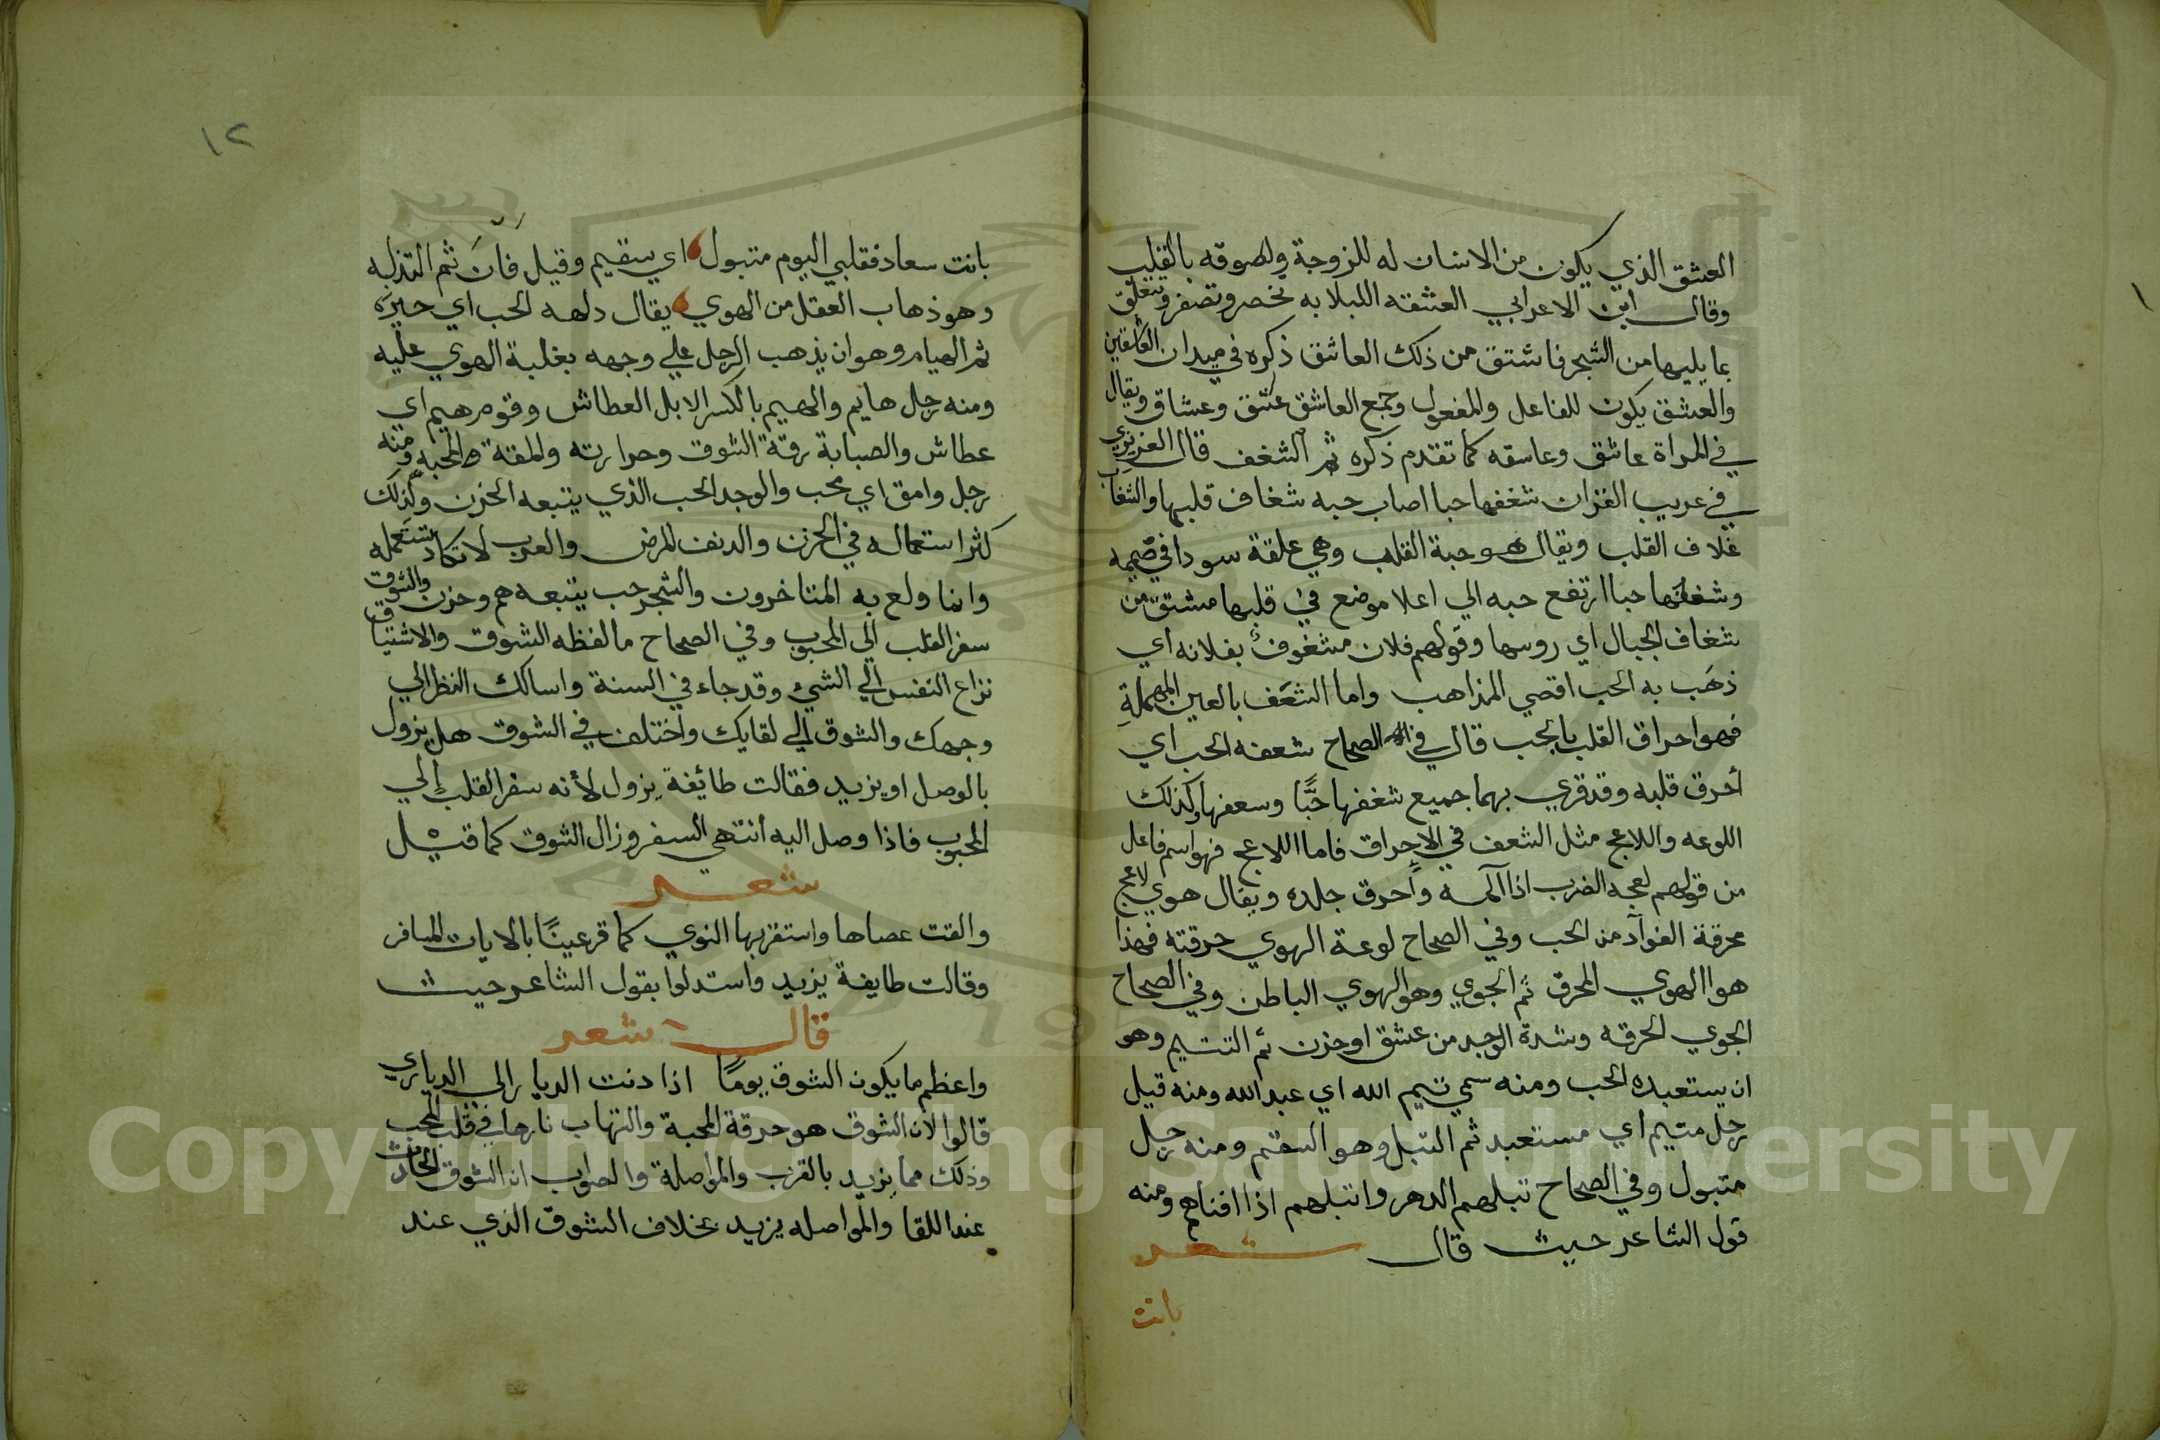 العشق الذي يكون من الانسان له للزوجة ولصوقه بالقلب
وقال ابن الاعرابي العشقه اللبلابه تخضر وتصفر وتتعلق
بما يليها من الشجر فاشتق من ذلك العاشق ذكره في ميدان العاشقين
والعشق يكون للفاعل والمفعول وجمع العاشق عشق وعشاق ويقال
في المراة عاشق وعاسقه كما تقدم ذكره ثم الشغف قال العزيزي
في عريب القران شغفها حبا اصاب حبه شغاف قلبها والشغاف
غلاف القلب ويقال هو حبة القلب وهي علقة سودا في صميمه
وشغفها حبا ارتفع حبه الي اعلا موضع في قلبها مشتق من
شغاف الجبال اي روسها وقولهم فلان مشغوف بفلانه اي
ذهب به الحب اقصي المذاهب واما الشعف بالعين المهملة
فهو احراق القلب بالحب قال في الصحاح شعفه الحب اي
أحرق قلبه وقد قري بهما جميع شغفها حبًّا وسعفها وكذلك
اللوعه واللاعج مثل الشعف في الاحراق فاما اللاعج فهو اسم فاعل
من قولهم لعجه الضرب اذا آلمه وأحرق جلده ويقال هوي لاعج
محرقة الفوآد من الحب وفي الصحاح لوعة الهوي حرقته فهذا
هو الهوي المحرق ثم الجوي وهو الهوي الباطن وفي الصحاح
الجوي الحرقه وشدة الوجد من عشق او حزن ثم التتيم وهو
ان يستعبده الحب ومنه سمي تيم الله اي عبد الله ومنه قيل
رجل متيم اي مستعبد ثم التبل وهو السقم ومنه رجل
متبول وفي الصحاح تبلهم الدهر واتبلهم اذا افناهم ومنه
قول الشاعر حيث قال شعر
بانت
١٢
بانت سعاد فقلبي اليوم متبول اي سقيم وقيل فان ثم التدله
وهو ذهاب العقل من الهوي يقال دلهه الحب اي حيره
ثم الهيام وهو ان يذهب الرجل علي وجهه بغلبة الهوي عليه
ومنه رجل هايم والهيم بالكسر الابل العطاش وقوم هيم اي
عطاش والصبابة رقة الشوق وحرارته والمقة المحبه ومنه
رجل وامق اي محب والوجد الحب الذي يتبعه الحزن وكذلك
كثر استعماله في الحزن والدنف المرض والعرب لا تكاد تستعمله
وانما ولع به المتاخرون والشجر حب يتبعه هم وحزن والشوق
سفر القلب الي المحبوب وفي الصحاح ما لفظه الشوق والاشتياق
نزاع النفس الي الشيء وقد جاء في السنة واسالك النظر الي
وجهك والشوق الي لقايك واختلف في الشوق هل يزول
بالوصل او يزيد فقالت طائفة يزول لأنه سفر القلب إلي
المحبوب فاذا وصل اليه انتهي السفر وزال الشوق كما قيل
شعر
والقت عصاها واستقر بها النوي كما قر عينًا بالايات المسافر
وقالت طايفة يزيد واستدلوا بقول الشاعر حيث
قال شعر
واعظم ما يكون الشوق يومًا اذا دنت الديار الي الدياري
قالوا لان الشوق هو حرقة المحبة والتهاب نارها في قلب المحب
وذلك مما يزيد بالقرب والمواصلة والصواب ان الشوق الحادث
عند اللقا والمواصله يزيد بخلاف الشوق الذي عند
Copyright © King Saud University